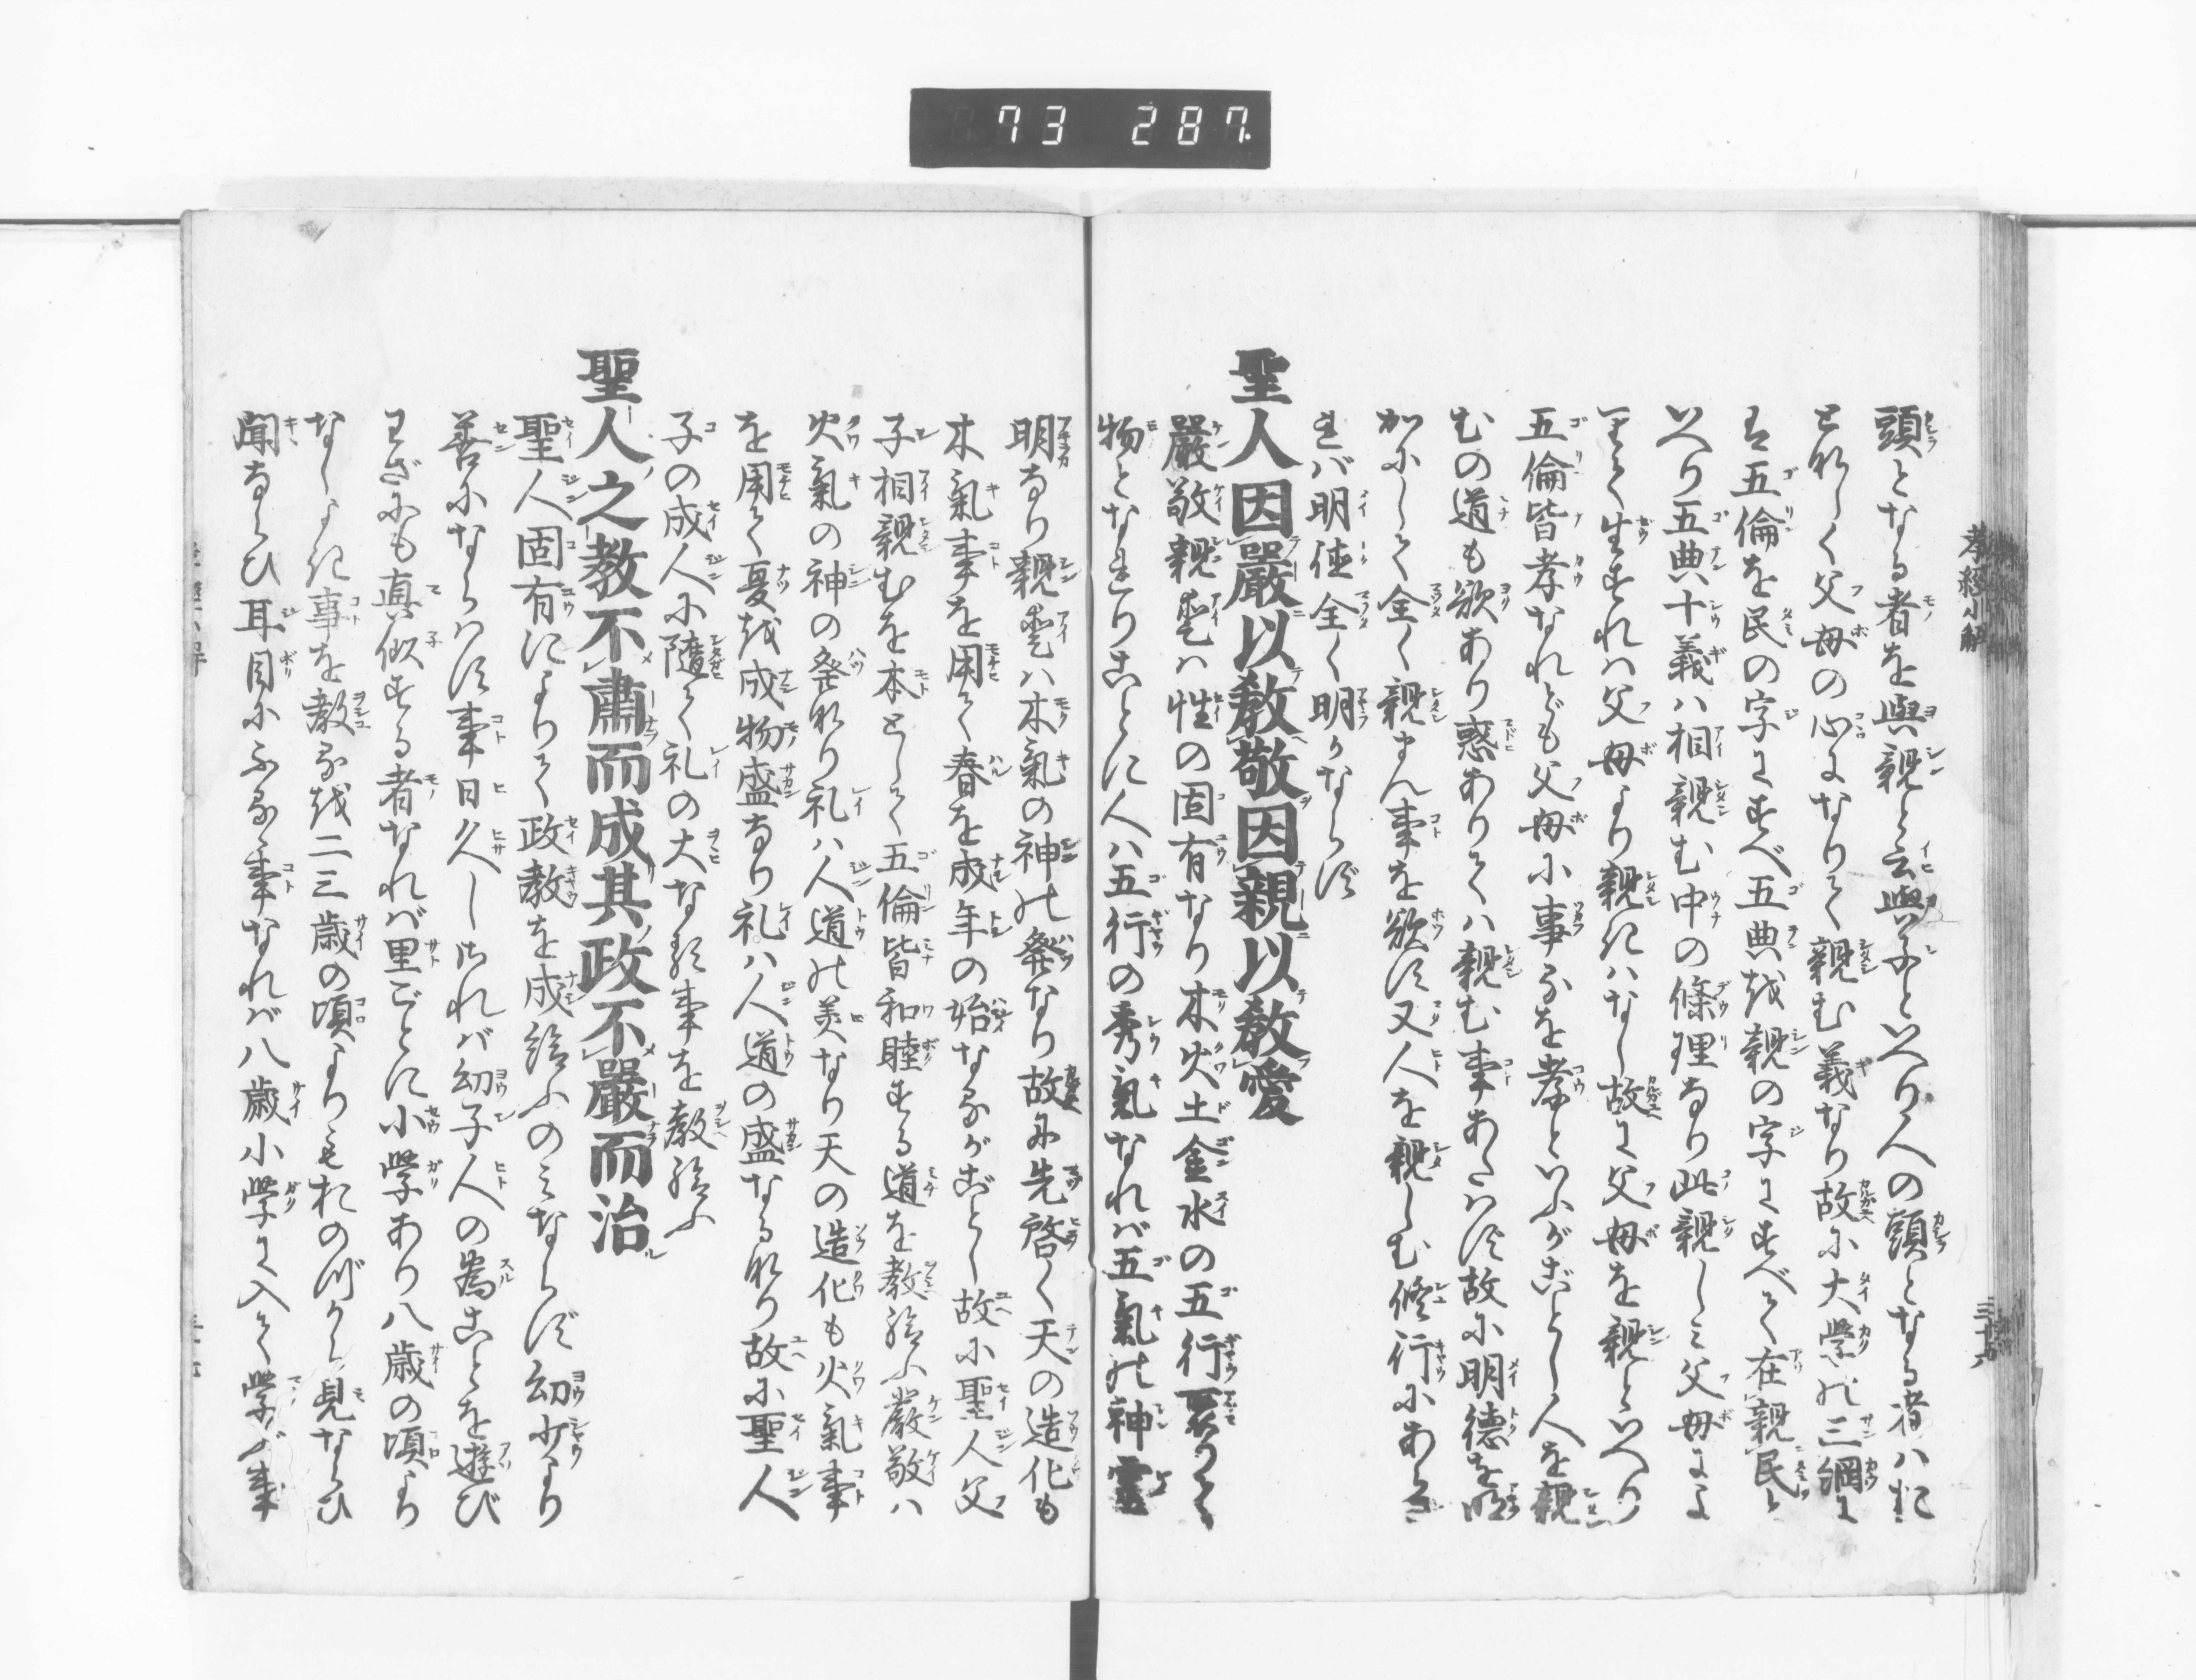 73 287.
孝經小解
三十六
頭となる者を與親と云與子といへり人の頭となる者ハおに
となく父母の心になりて親む義なり故に大学の三綱に
は五倫を民の字にすべ五典を親の字にすべて在親民と
いへり五典十義ハ相親む中の條理なり此親しミ父母によ
りて生ずれハ父母より親きハなし故に父母を親といへり
五倫皆孝なれども父母に事るを孝といふがごとし人を親
むの道も欲あり惑ありてハ親む事あたハず故に明徳を明
かにして全く親まん事を欲す又人を親しむ修行にあらざ
れバ明徳全く明かならず
聖人因嚴以教敬因親以教愛
嚴敬親愛ハ性の固有なり木火土金水の五行聚りて
物となれりことに人ハ五行の秀氣なれバ五氣の神靈
明なり親愛ハ木氣の神の発なり故に先啓く天の造化も
木氣事を用て春を成年の始なるがごとし故に聖人父
子相親むを本として五倫皆和睦する道を教給ふ嚴敬ハ
火氣の神の発なり礼ハ人道の美なり天の造化も火氣事
を用て夏を成物盛なり礼ハ人道の盛なるなり故に聖人
子の成人に隨て礼の大なる事を教給ふ
聖人之教不肅而成其政不嚴而治
聖人固有によりて政教を成給ふのミならず幼少より
善にならハす事日久しけれバ幼子人の為ことを遊び
わざにも真似する者なれバ里ごとに小学あり八歳の頃より
なしよき事を教るを二三歳の頃よりもおのづから見ならひ
聞ならひ耳目にふるゝ事なれバ八歳小学に入て学ぶ事